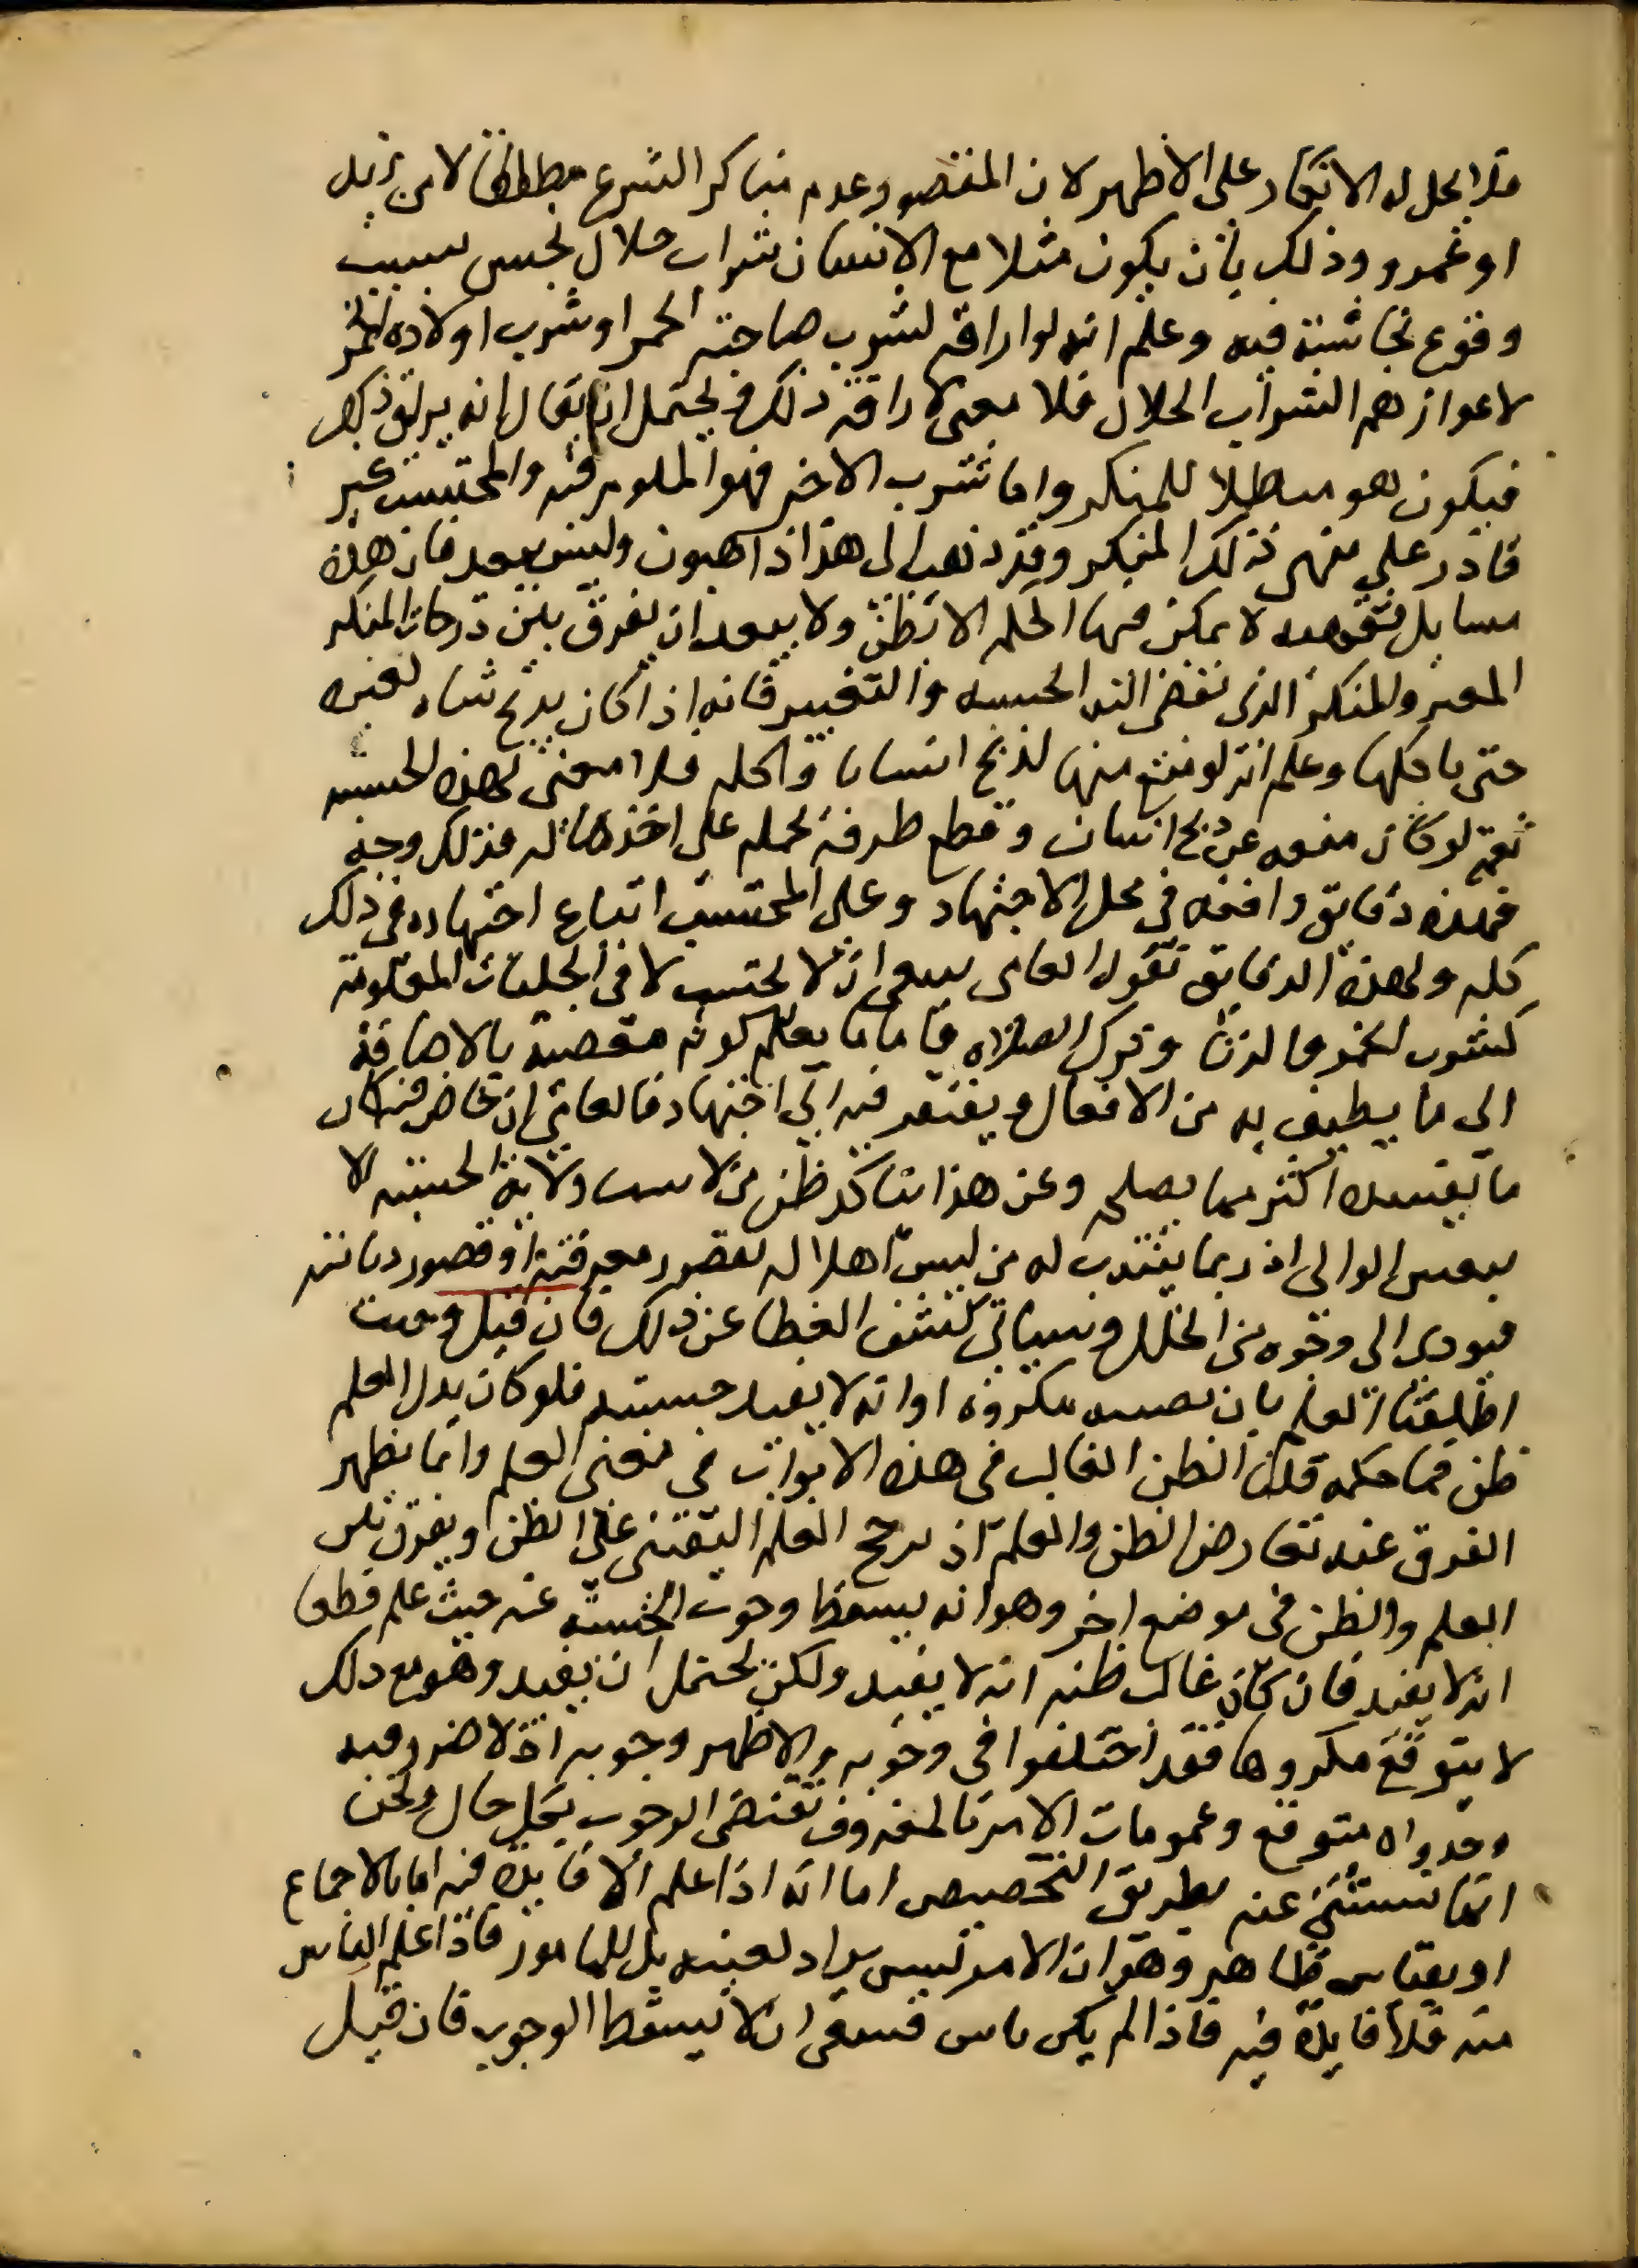 فلا يحل له الانكار على الاظهر لان المقصود عدم مناكر الشرع مطلقا لا من زيد
او عمرو وذلك بان يكون مثلا مع الانسان شراب حلال نجس بسبب
وقوع نجاسة فيه وعلم انه لو اراقه لشرب صاحبه الخمر او شرب اولاده الخمر
لاعوازهم الشراب الحلال فلا معنى لاراقة ذلك ويحتمل ان يقال انه يريق ذلك
فيكون هو مبطلا للمنكر واما شرب الاخر فهو الملوم فيه والمحتسب غير
قادر على منعه من ذلك المنكر وقد ذهب الى هذا ذاهبون وليس ببعيد فان هذه
مسايل فقهيه لا يمكن فيها الحكم الا بظن ولا يبعد ان يفرق بين درجات المنكر
المغير والمنكر الذى تفضى اليه الحسبه والتغيير فانه اذا كان يذبح شاه لغيره
حتى ياكلها وعلم انه لو منع منها لذبح انسانا واكله فلا معنى لهذه الحسبه
نعم لو كان منعه عن ذبح انسان وقطع طرفه يحمله على اخذ ماله فذلك وجه
فهذه دقايق واقعه فى محل الاجتهاد وعلى المحتسب اتباع اجتهاده فى ذلك
كله ولهذه الدقايق نقول العامى ينبغى ان لا يحتسب الا فى الجليات المعلومة
كشرب الخمر والزنا وترك الصلاه فاما ما يعلم كونه معصية بالاضافة
الى ما يطيف به من الافعال ويفتقر فيه الى اجتهاد فالعامى ان خاض فيه كان
ما يفسده اكثر مما يصلحه وعن هذا يتاكد ظن من لا يثبت ولاية الحسبه الا
بتعيين الوالى اذ ربما ينتدب له من ليس اهلا له لقصور معرفته او قصور ديانته
فيودى الى وجوه من الخلل وسياتى كشف الغطا عن ذلك فان قيل وحيث
اطلقتم العلم بان يصيبه مكروه او انه لا يفيد حسبته فلو كان بدل العلم
ظن فما حكمه قلنا الظن الغالب فى هذه الابواب فى معنى العلم وانما يظهر
الفرق عند تعارض الظن والعلم اذ يرجح العلم اليقينى على الظن ويفرق بين
العلم والظن فى موضع اخر وهو انه يسقط وجوب الحسبة عنه حيث علم قطعا
انه لا يفيد فان كان غالب ظنه انه لا يفيد ولكن يحتمل ان يفيد وهو مع ذلك
لا يتوقع مكروها فقد اختلفوا فى وجوبه والاظهر وجوبه اذ لا ضرر فيه
وجدواه متوقع وعمومات الامر بالمعروف تقتضى الوجوب بكل حال ونحن
انما نستثنى عنه بطريق التخصيص اما انه اذا علم الا فايدة فيه اما بالاجماع
او بقياس ظاهر وهو ان الامر ليس يراد لعينه بل للمامور فاذا علم الياس
منه فلا فايدة فيه فاذا لم يكن ياس فينبغى ان لا يسقط الوجوب فان قيل